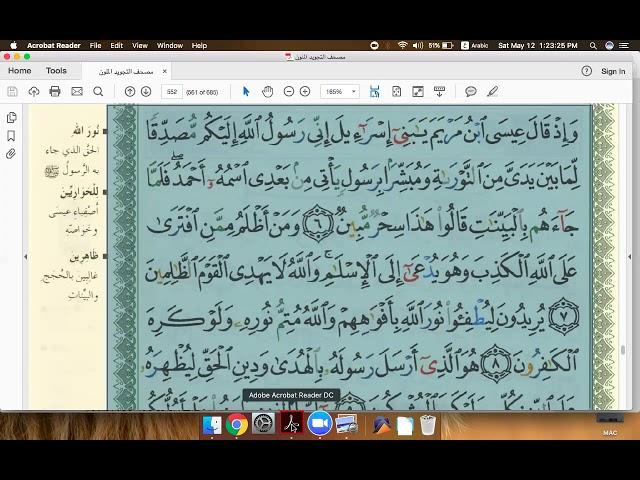 Acrobat Reader File Edit View Window Help 51% Arabic Sat May 12 1:23:25 PM
مصحف التجويد الملون
Home Tools مصحف التجويد الملون × Sign In
552 (561 of 685) 165%
وَإِذْ قَالَ عِيسَى ٱبْنُ مَرْيَمَ يَـٰبَنِىٓ إِسْرَٰٓءِيلَ إِنِّى رَسُولُ ٱللَّهِ إِلَيْكُم مُّصَدِّقًا
لِّمَا بَيْنَ يَدَىَّ مِنَ ٱلتَّوْرَىٰةِ وَمُبَشِّرًۢا بِرَسُولٍ يَأْتِى مِنۢ بَعْدِى ٱسْمُهُۥٓ أَحْمَدُ ۖ فَلَمَّا
جَآءَهُم بِٱلْبَيِّنَـٰتِ قَالُوا۟ هَـٰذَا سِحْرٌ مُّبِينٌ ٦ وَمَنْ أَظْلَمُ مِمَّنِ ٱفْتَرَىٰ
عَلَى ٱللَّهِ ٱلْكَذِبَ وَهُوَ يُدْعَىٰٓ إِلَى ٱلْإِسْلَـٰمِ ۚ وَٱللَّهُ لَا يَهْدِى ٱلْقَوْمَ ٱلظَّـٰلِمِينَ
٧ يُرِيدُونَ لِيُطْفِـُٔوا۟ نُورَ ٱللَّهِ بِأَفْوَٰهِهِمْ وَٱللَّهُ مُتِمُّ نُورِهِۦ وَلَوْ كَرِهَ
ٱلْكَـٰفِرُونَ ٨ هُوَ ٱلَّذِىٓ أَرْسَلَ رَسُولَهُۥ بِٱلْهُدَىٰ وَدِينِ ٱلْحَقِّ لِيُظْهِرَهُۥ
نُورَ اللهِ
الحقّ الذي جاء
به الرّسولُ ﷺ
لِلْحَوَارِيِّنَ
أصْفِياءِ عيسى
وخواصِّه
ظَاهِرِينَ
غالبِينَ بالحُجَجِ
والبيِّناتِ
Adobe Acrobat Reader DC
MAC